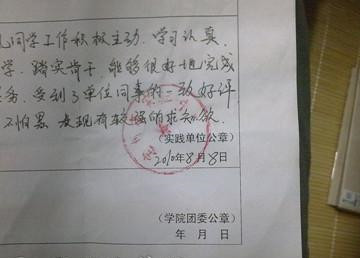 同学工作积极主动、学习认真
学、踏实肯干、能够很好地完成
务、受到了单位同事的一致好评
不怕累、表现有较强的求知欲.
(实践单位公章)
2010年8月8日
(学院团委公章)
年 月 日